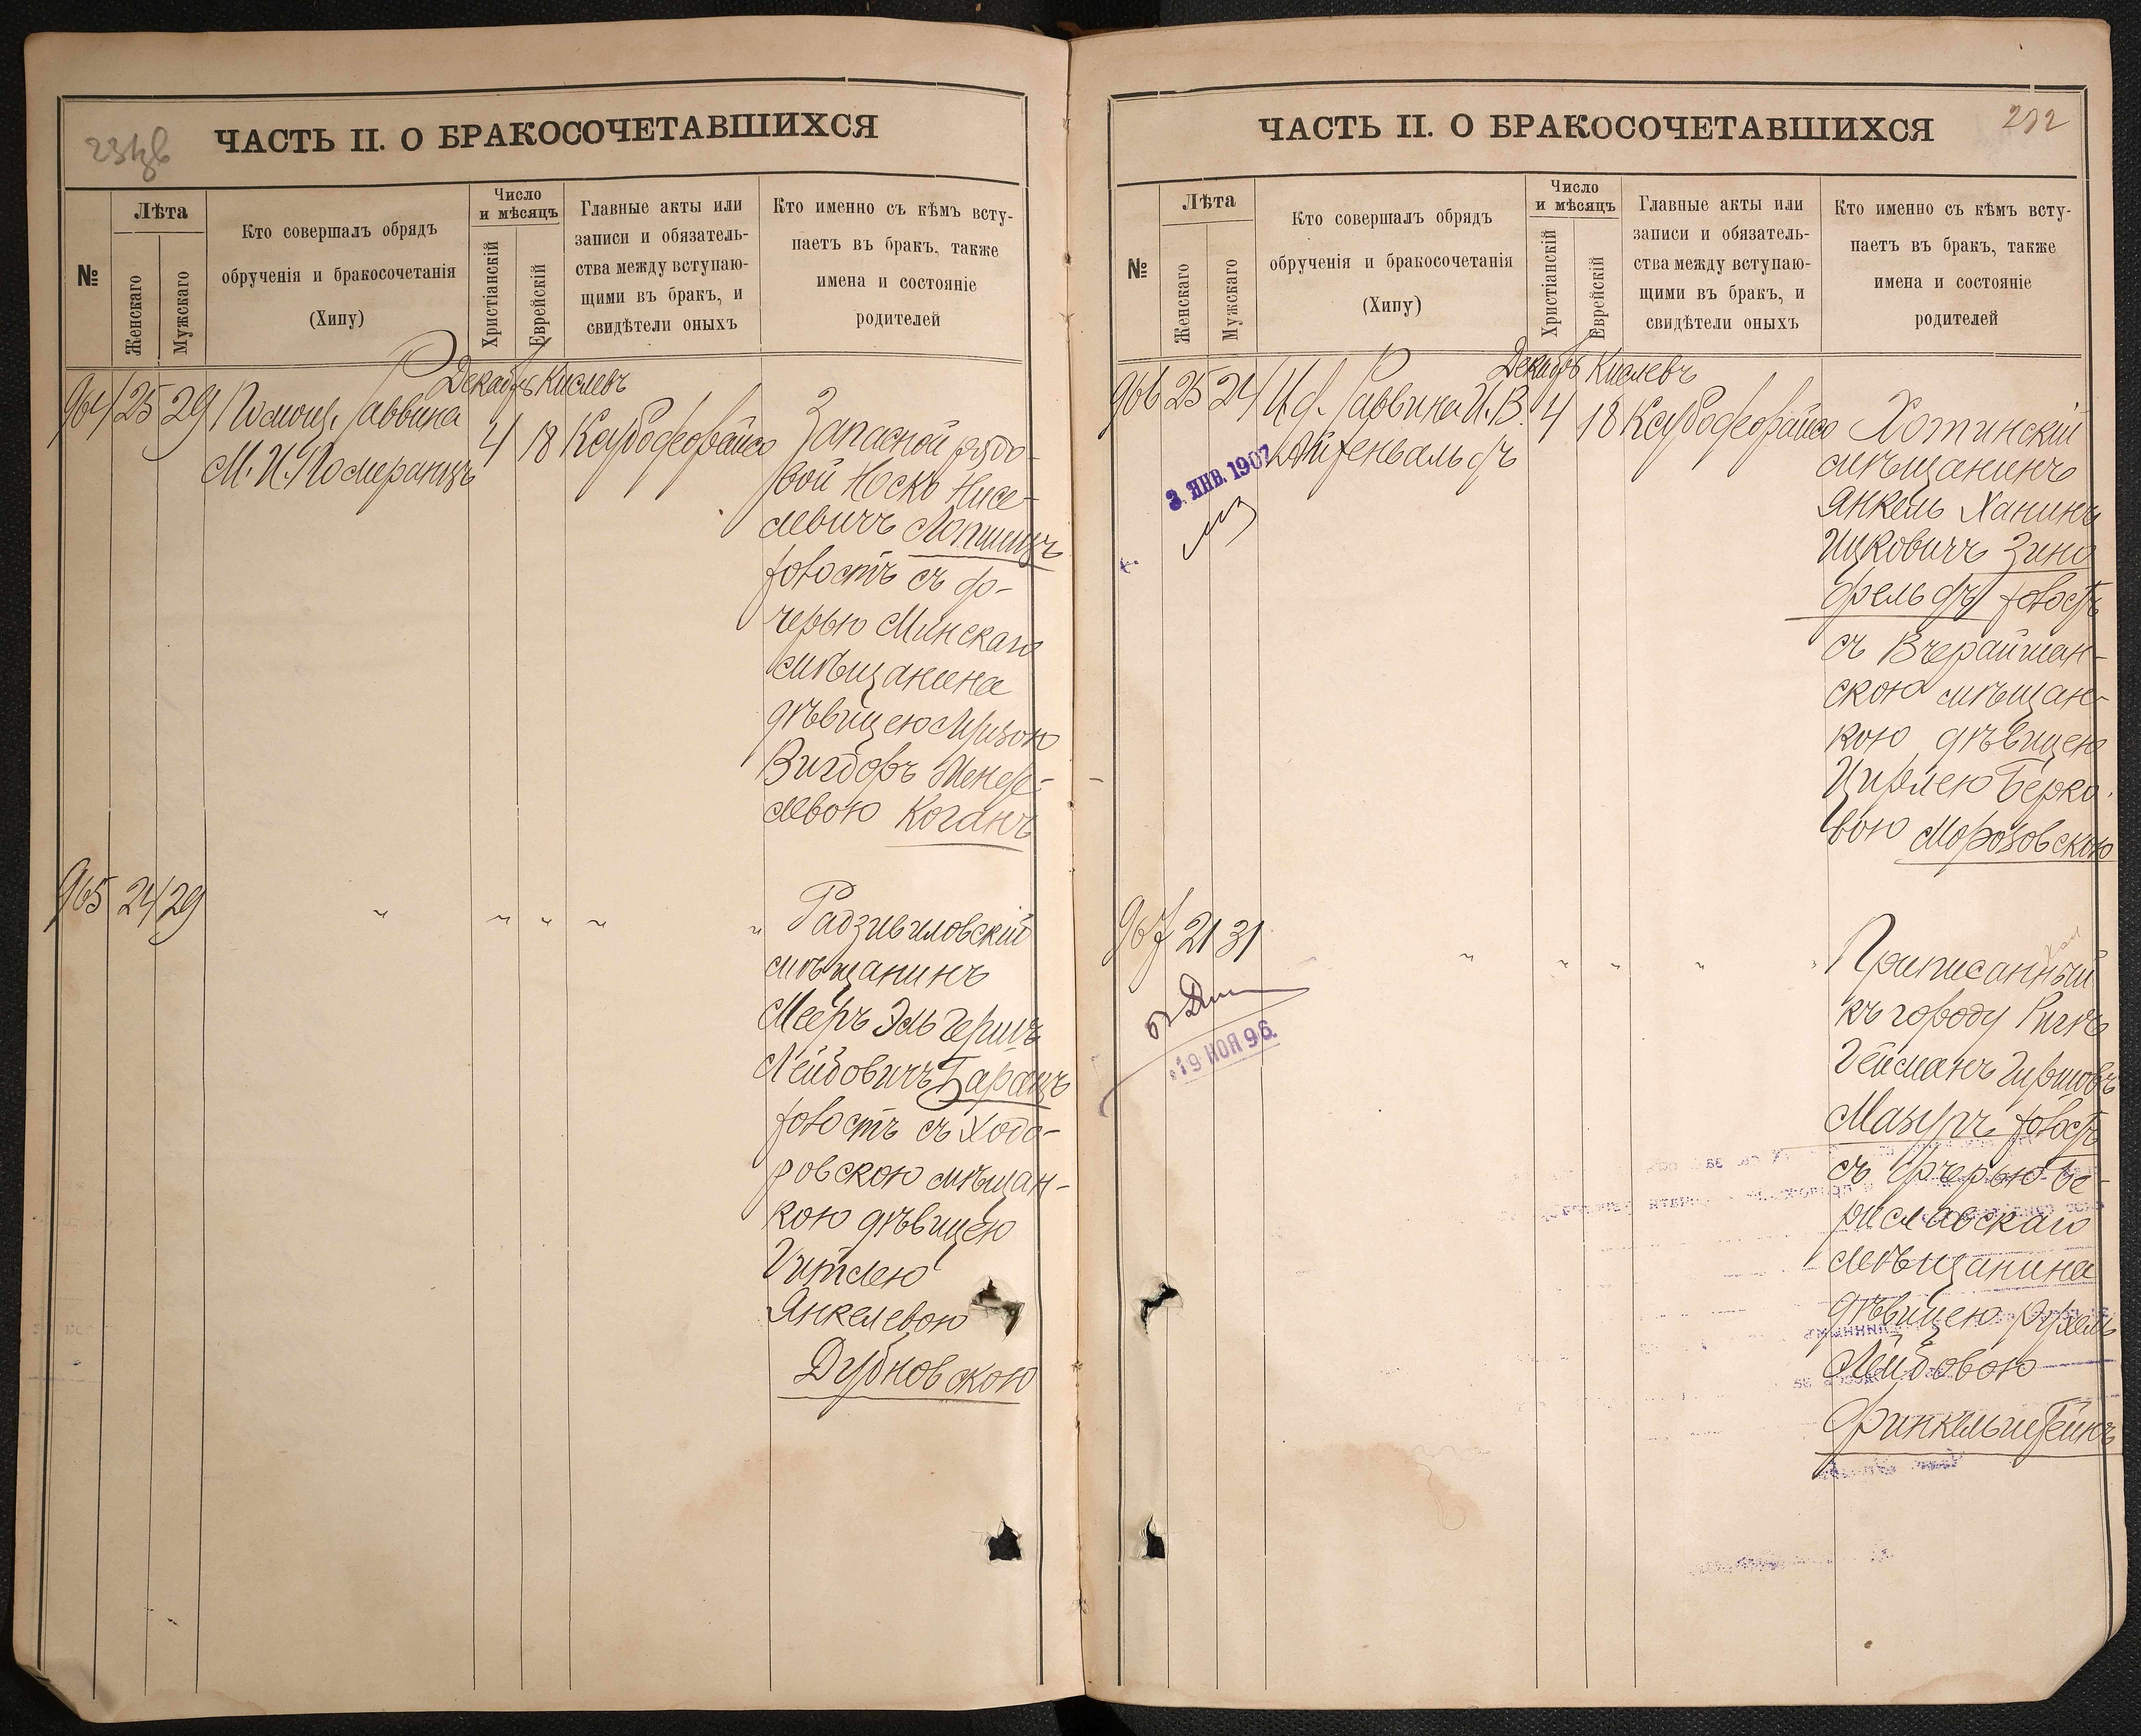 ЧАСТЬ II. О БРАКОСОЧЕТАВШИХСЯ
№
Лѣта
Женскаго
Мужскаго
Кто совершалъ обрядъ
обрученія и бракосочетанія
(Хипу)
Число
и мѣсяцъ
Христіанскій
Еврейскій
Главные акты или
записи и обязатель-
ства между вступаю-
щими въ бракъ, и
свидѣтели оныхъ
Кто именно съ кѣмъ всту-
паетъ въ бракъ, также
имена и состояніе
родителей
Декабрь Кислевъ
964 25 29 Помощ. Раввина
М. И. Померанцъ
4 18
Запасной рядо-
вой Іоскъ Нисе-
левичъ Лопшицъ
холостъ съ до-
черью Минскаго
мѣщанина
дѣвицею
Вигдоръ Менде-
левою Коганъ
965 24 29 " " " " "
Радзивиловскій
мѣщанинъ
Мееръ Эль Гершъ
Лейбовичъ Баранъ
холостъ съ Ходо-
ровскою мѣщан-
кою дѣвицею
Гитлею
Янкелевою
Дубновскою
ЧАСТЬ II. О БРАКОСОЧЕТАВШИХСЯ
232
№
Лѣта
Женскаго
Мужскаго
Кто совершалъ обрядъ
обрученія и бракосочетанія
(Хипу)
Число
и мѣсяцъ
Христіанскій
Еврейскій
Главные акты или
записи и обязатель-
ства между вступаю-
щими въ бракъ, и
свидѣтели оныхъ
Кто именно съ кѣмъ всту-
паетъ въ бракъ, также
имена и состояніе
родителей
Декабрь Кислевъ
966 25 24 И. д. Раввина И. В.
Айзенвальдъ
4 18
3. ЯНВ. 1907
Хотинскій
мѣщанинъ
Янкель Ханинъ
Ицковичъ Зинг
фельдъ холостъ
съ Вчерайшан-
скою мѣщан-
кою дѣвицею
Цирлею Берко-
вою Морозовскою
967 21 31 " " " " "
19 НОЯ 96.
Приписанный
къ городу Ригѣ
Гейманъ Гиршовъ
Мазуръ холостъ
съ дочерью Бе-
риславскаго
мѣщанина
дѣвицею Рухель
Лейбовою
Финкельштейнъ